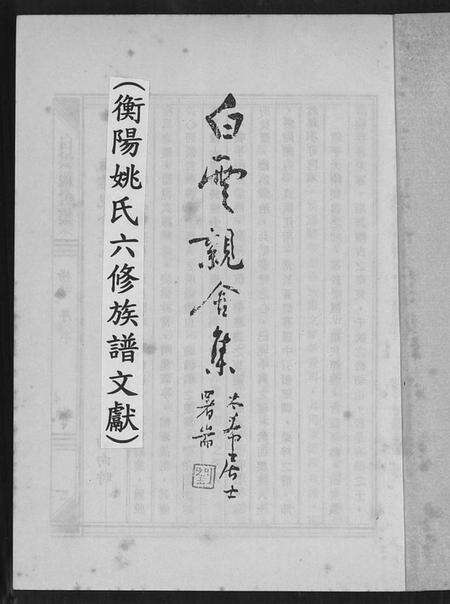 白雲親舍集
太希居士
署耑
(衡陽姚氏六修族譜文獻)